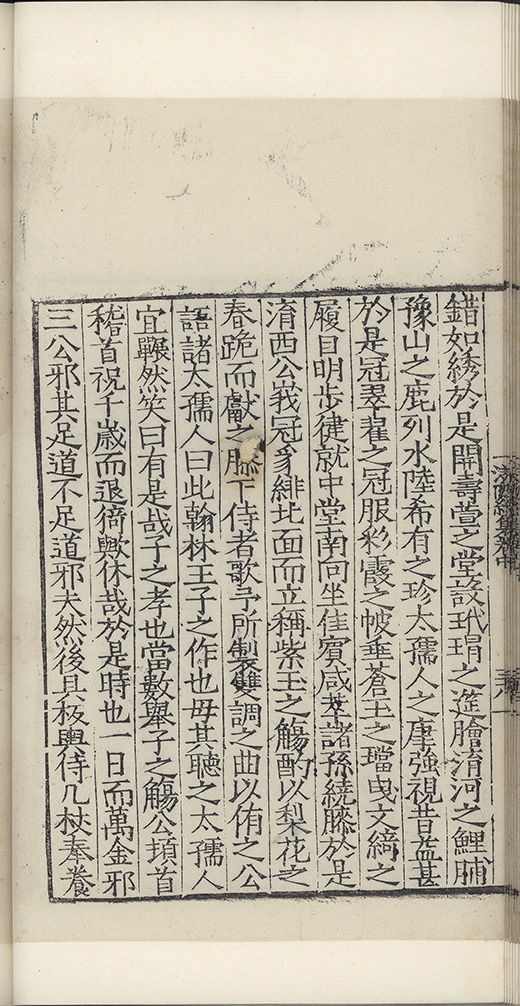 錯如綉於是開壽萱之堂設玳瑁之筵膾淯河之鯉脯
豫山之鹿列水陸希有之珍太孺人之康強視昔益甚
於是冠翠翟之冠服彩霞之帔垂蒼玉之璫曳文綺之
履目明步健就中堂南向坐佳賓咸萃諸孫繞膝於是
淯西公峩冠豸緋北面而立稱紫玉之觴酌以梨花之
春跪而獻之膝下侍者歌予所製雙調之曲以侑之公
語諸太孺人曰此翰林王子之作也毋其聽之太孺人
宜囅然笑曰有是哉子之孝也當數舉子之觴公頓首
稽首祝千歲而退猗歟休哉於是時也一日而萬金邪
三公邪其足道不足道邪夫然後具板輿侍几杖奉養